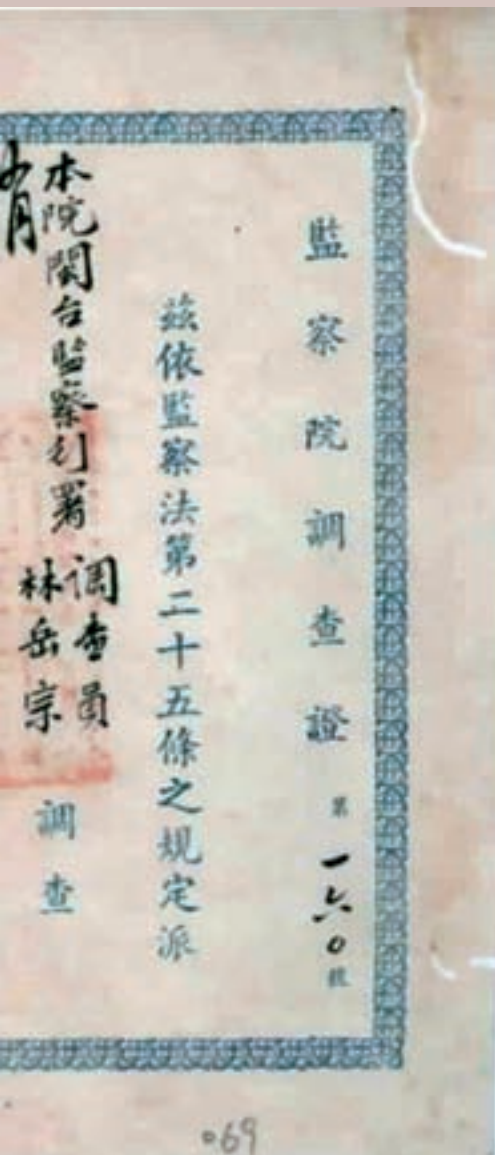 監察院調查證 第一六0號
茲依監察法第二十五條之規定派
本院閩台監察行署調查員林岳宗調查
069